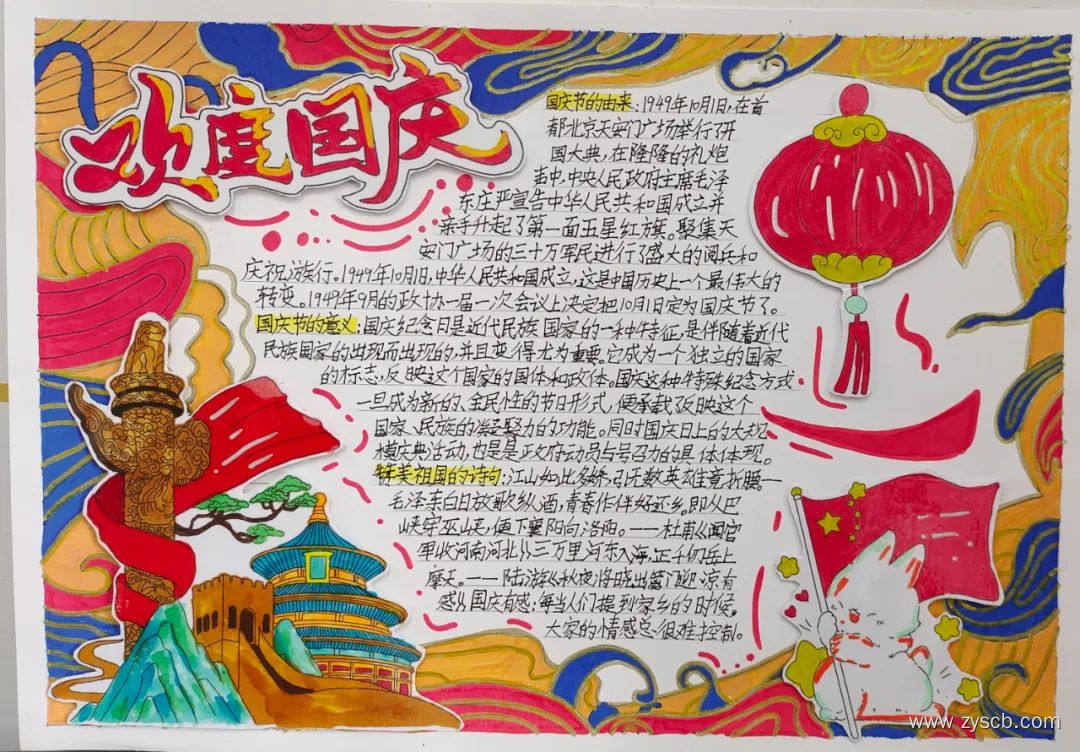 欢度国庆
国庆节的由来:1949年10月1日,在首
都北京天安门广场举行了开
国大典,在隆隆的礼炮
声中,中央人民政府主席毛泽
东庄严宣告中华人民共和国成立并
亲手升起了第一面五星红旗。聚集天
安门广场的三十万军民进行了盛大的阅兵和
庆祝游行。1949年10月1日,中华人民共和国成立,这是中国历史上一个最伟大的
转变。1949年9月的政协一届一次会议上决定把10月1日定为国庆节了。
国庆节的意义:国庆纪念日是近代民族国家的一种特征,是伴随着近代
民族国家的出现而出现的,并且变得尤为重要。它成为一个独立的国家
的标志,反映这个国家的国体和政体。国庆这种特殊纪念方式
一旦成为新的、全民性的节日形式,便承载反映这个
国家、民族的凝聚力的功能。同时国庆日上的大规
模庆典活动,也是是政府动员与号召力的具体体现。
赞美祖国的诗句:江山如此多娇,引无数英雄竞折腰。—
毛泽东白日放歌纵酒,青春作伴好还乡,即从巴
峡穿巫峡,便下襄阳向洛阳。——杜甫《闻官
军收河南河北》三万里河东入海,五千仞岳上
摩天。——陆游《秋夜将晓出篱门迎凉有
感》国庆有感:每当人们提到家乡的时候。
大家的情感总很难控制。
www.zyscb.com